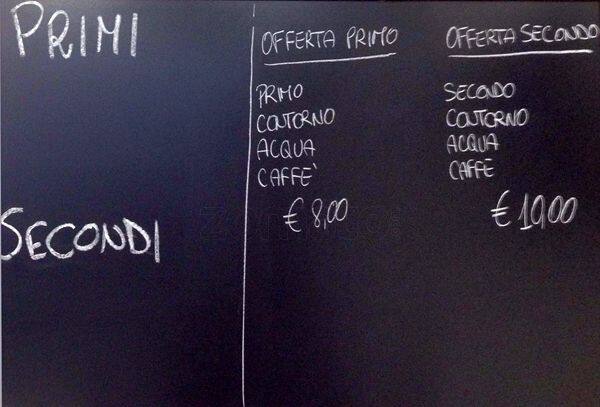 PRIMI
SECONDI
OFFERTA PRIMO
PRIMO
CONTORNO
ACQUA
CAFFE'
€ 8,00
OFFERTA SECONDO
SECONDO
CONTORNO
ACQUA
CAFFE
€ 10,00